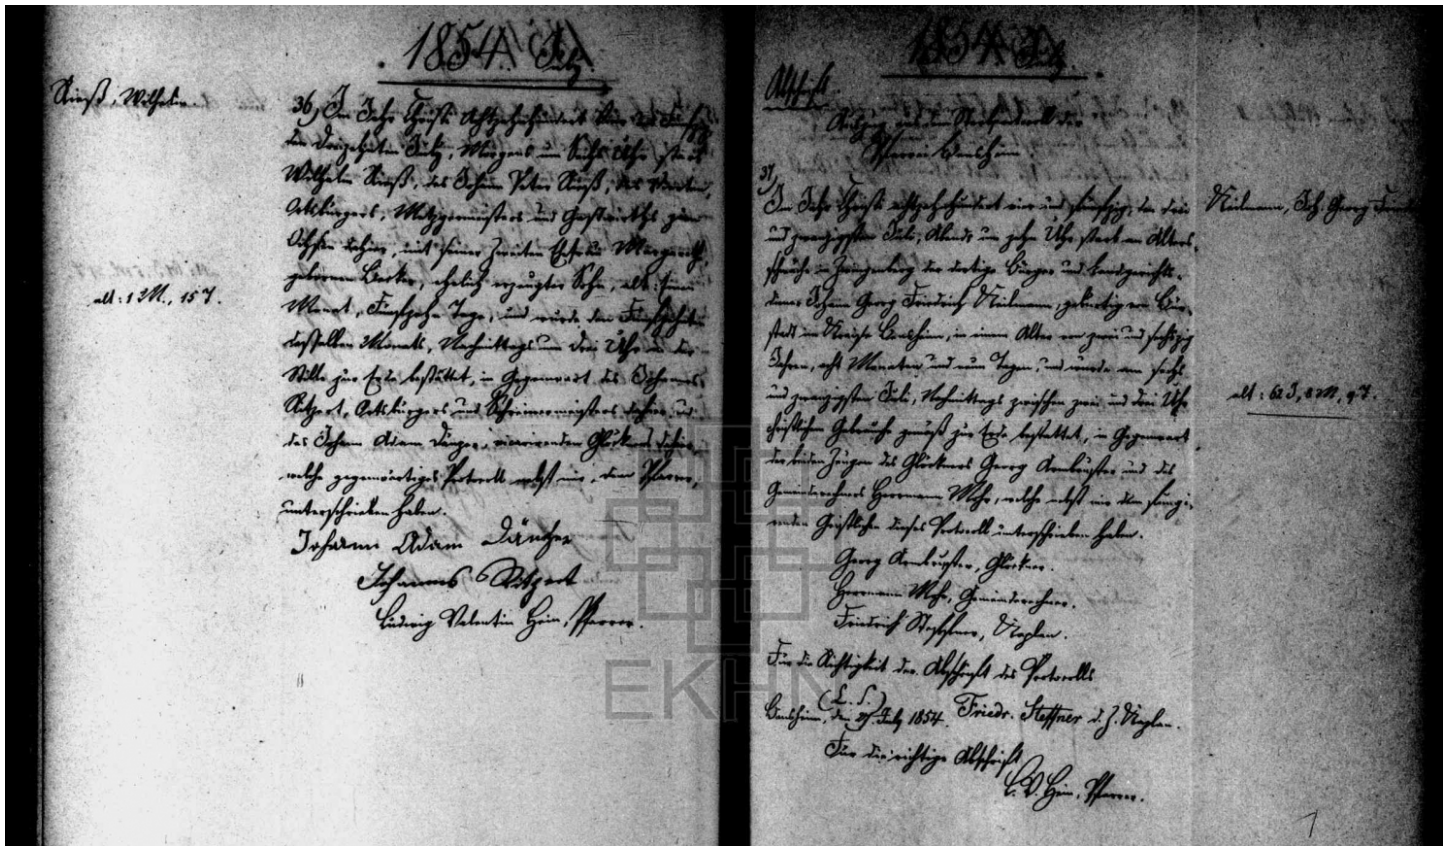 1854. July.
Rieß, Wilhelm.
36, Im Jahr Christi Achtzehnhundert Vier und Fünfzig
den Dreizehnten July, Morgens um Sechs Uhr starb
Wilhelm Rieß, des Johann Peter Rieß, des
Ortsbürgers, Metzgermeisters und Gastwirths zum
Ochsen dahier, mit seiner Zweiten Ehefrau Margareth
geborenen Becker, ehelich erzeugter Sohn, alt: Einen
Monat, Fünfzehn Tage, und wurde den Fünfzehnten
desselben Monats, Nachmittags um drei Uhr in der
Stille zur Erde bestattet, in Gegenwart des Johannes
Ritzert, Ortsbürgers und Schreinermeisters dahier und
des Johann Adam, vicarirenden Glöckners dahier,
welche gegenwärtiges Protocoll nebst mir, dem Pfarrer,
unterschrieben haben.
alt: 1 M., 15 T.
Johann Adam
Johannes Ritzert
Ludwig Valentin Hein, Pfarrer.
1854. July.
Abschrift.
Auszug aus dem Sterbprotocoll der
Pfarrei Bensheim.
37,
Im Jahr Christi achtzehnhundert vier und fünfzig, den drei
und zwanzigsten Juli, Abends um zehn Uhr starb an Alters-
schwäche in Zwingenberg der dortige Bürger und Landgerichts-
diener Johann Georg Friedrich, gebürtig von Bür-
stadt im Kreise Bensheim, in einem Alter von zwei und sechszig
Jahren, acht Monaten und neun Tagen, und wurde am sechs
und zwanzigsten Juli, Nachmittags zwischen zwei und drei Uhr
christlichem Gebrauche gemäß zur Erde bestattet, in Gegenwart
der beiden Zeugen des Glöckners Georg Armbruster und des
Gemeinderechners Herrmann Mohr, welche nebst mir dem fungi-
renden Geistlichen dieses Protocoll unterschrieben haben.
Joh. Georg
alt: 62 J, 8 M, 9 T.
Georg Armbruster, Glöckner.
Herrmann Mohr, Gemeinderechner.
Friedrich Steffner, Kaplan.
Für die Richtigkeit der Abschrift des Protocolls
(L. S.)
Bensheim, den 27. July 1854. Friedr. Steffner d. Z. Kaplan.
Für die richtige Abschrift
L. V. Hein, Pfarrer.
EKHN